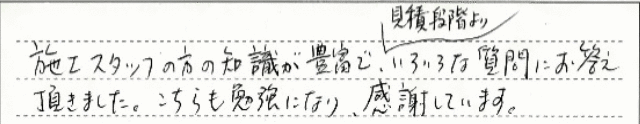 見積段階より
施工スタッフの方の知識が豊富で、いろいろな質問にお答え
頂きました。こちらも勉強になり、感謝しています。